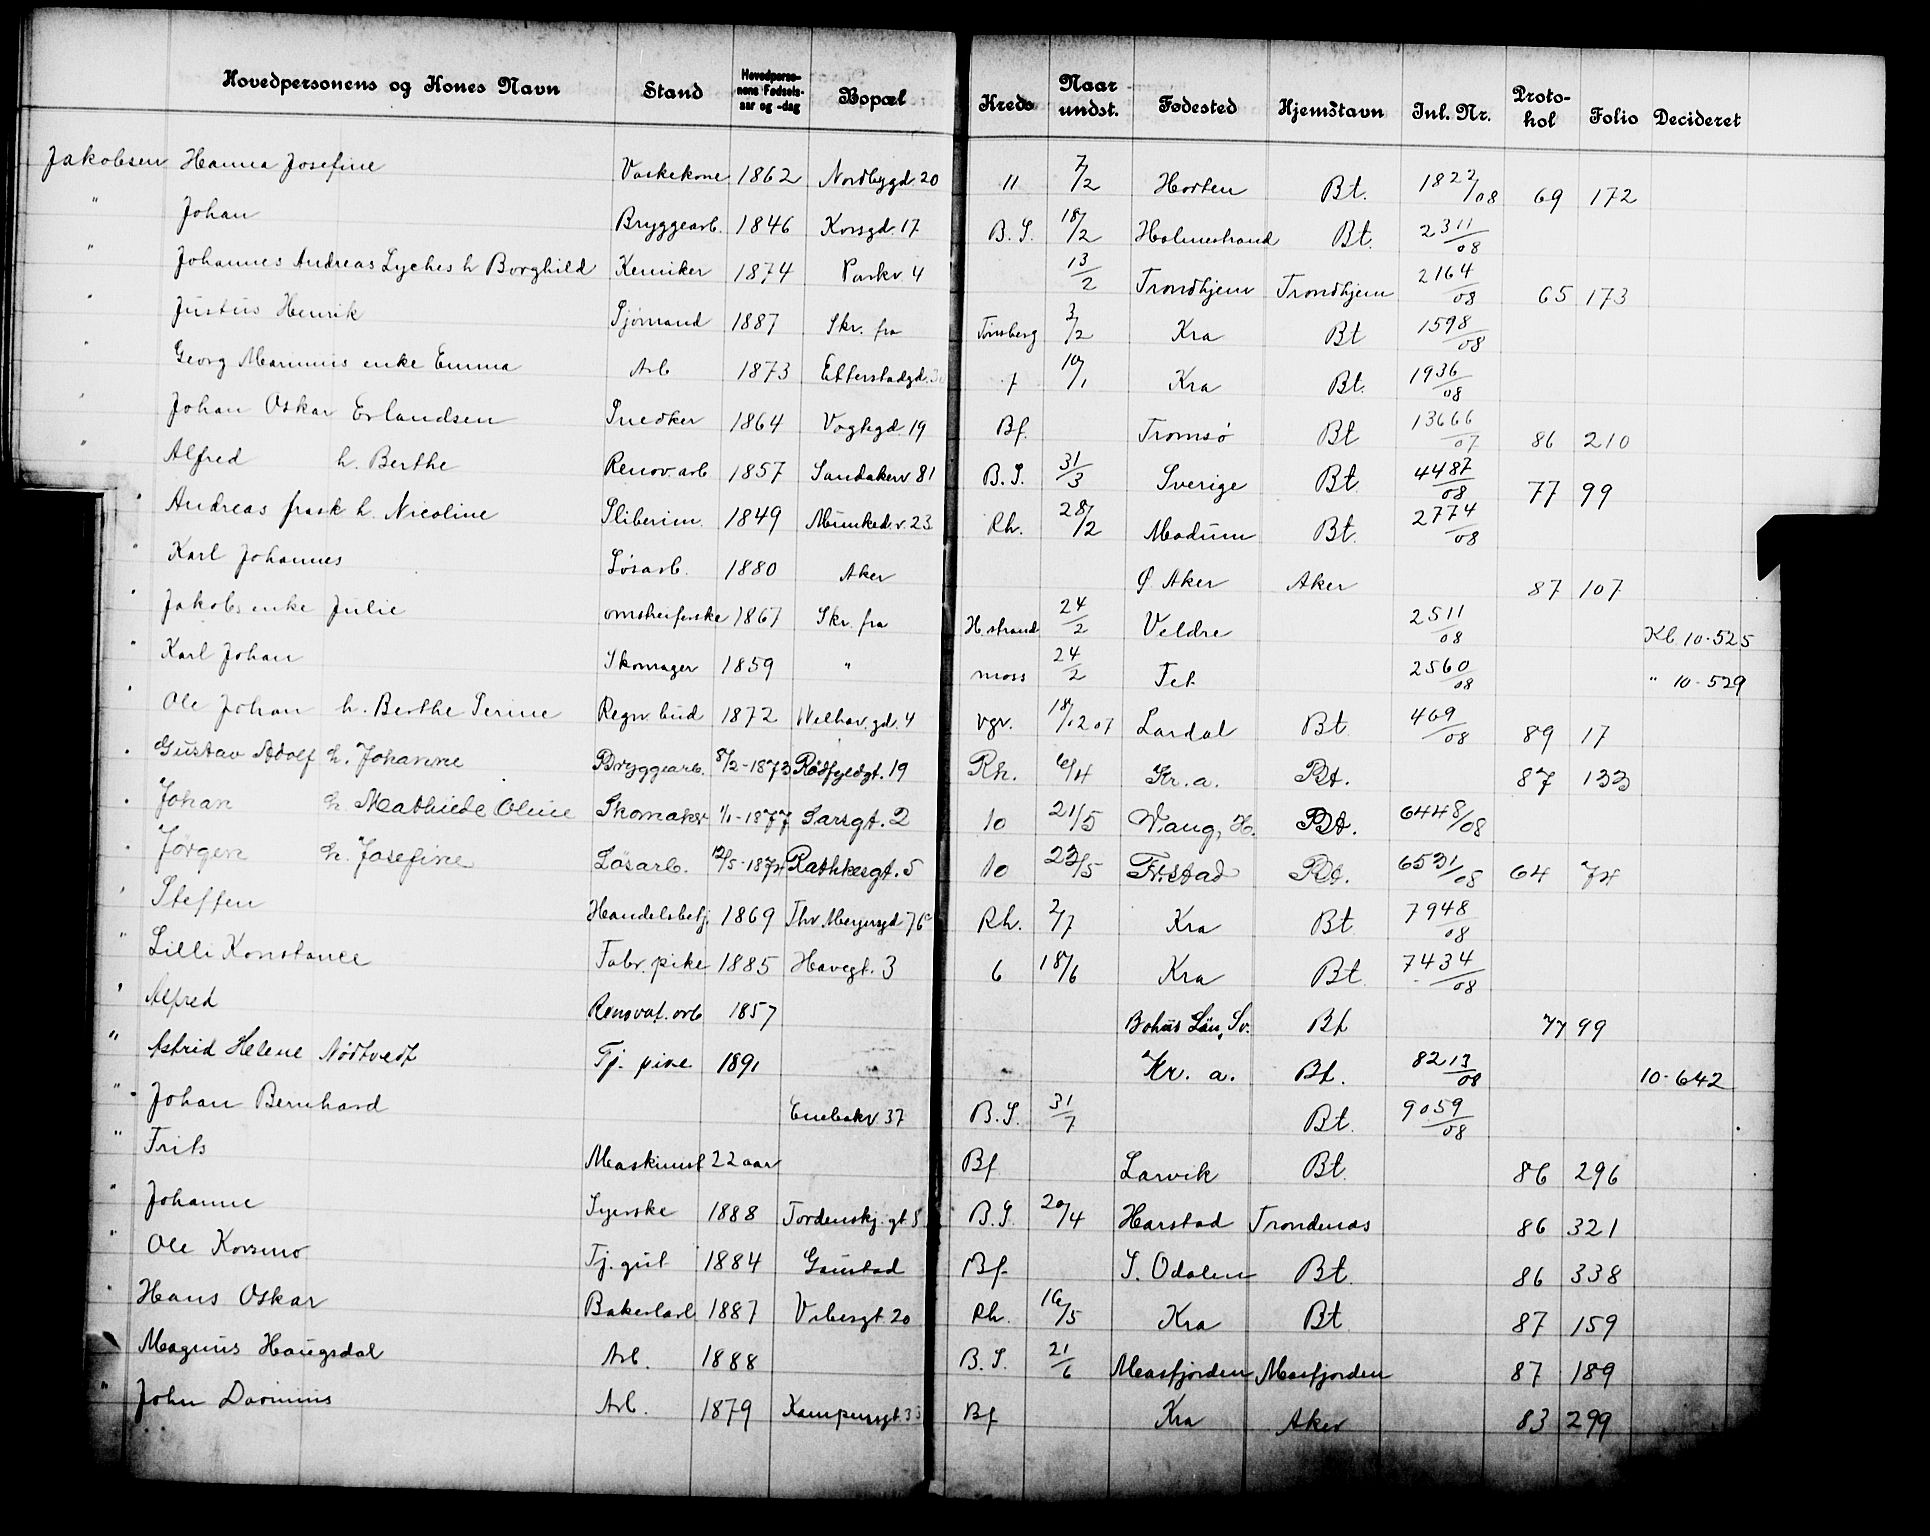 Hovedpersonens og Kones Navn Stand Hovedperso-nens Fødsels-aar og -dag Bopæl Kreds Naar undst. Fødested Hjemstavn Inl. Nr. Proto-kol Folio Decideret
Jakobsen Hanna Josefine Vaskekone 1862 Nordbygd. 20 11 7/2 Horten Bt. 1822/08 69 172
" Johan Bryggearb. 1846 Korsgd. 17 B. S. 18/2 Holmestrand Bt. 2311/08
" Johannes Andreas Lyches h Borghild Kemiker 1874 Parkv 4 13/2 Trondhjem Trondhjem 2164/08 65 173
" Justus Henrik Sjømand 1887 Skr. fra Tønsberg 3/2 Kra Bt 1598/08
" Georg Marinius enke Emma Arb 1873 Etterstadgd. 7 10/1 Kra Bt. 1936/08
" Johan Oskar Erlandsen Snedker 1864 Vogtgd. 19 Bf. Tromsø Bt 13666/07 86 210
" Alfred h. Berthe Renov. arb 1857 Sandakerv 81 B. S. 31/3 Sverige Bt. 4487/08 77 99
" Andreas frask h. Nicoline Sliberim. 1849 Munked. v. 23 Rh. 28/2 Modum Bt. 2774/08
" Karl Johannes Løsarb. 1880 Aker Ø. Aker Aker 87 107
" Jakobs enke Julie omstreiferske 1867 Skr. fra H. strand 24/2 Veldre 2511/08 Kb 10-525
" Karl Johan Skomager 1859 " moss 24/2 Fet 2560/08 " 10-529
" Ole Johan h. Berthe Serine Regnv. bud 1872 Welhav. gd. 4 vgv. 18/12 07 Lardal Bt 469/08 89 17
" Gustav Adolf h. Johanne Bryggearb. 8/2-1873 Rødfyldgt. 19 Rh. 6/4 Kr. a. Bt. 87 133
" Johan h. Mathilde Oline Skomaker 1/1-1877 Sarsgt. 2 10 21/5 Vang, H. Bt. 6448/08
" Jørgen h. Josefine Løsarb. 12/5-1874 Rathkesgt. 5 10 23/5 Fr.stad Bt. 6531/08 64 74
" Steffen Handelsbetj. 1869 Thv. Meyersgd 76c Rh. 2/7 Kra Bt 7948/08
" Lilli Konstance Fabr. pike 1885 Havegt. 3 6 18/6 Kra Bt. 7434/08
" Alfred Renovat. arb 1857 Bohus Län, Sv. Bt 77 99
" Astrid Helene Nødtvedt Tj. pike 1891 Kr. a. Bt. 8213/08 10-642
" Johan Bernhard Enebakv 37 B. S. 31/7 Bt. 9059/08
" Frits Maskinist 22 aar Bf Larvik Bt. 86 296
" Johanne Syerske 1888 Tordenskj. gt 5 B. S. 20/4 Harstad Trondenæs 86 321
" Ole Korsmo Tj. gut 1884 Gaustad Bf. S. Odalen Bt 86 338
" Hans Oskar Bakerlærl 1887 Vibesgt. 20 Rh. 16/5 Kra Bt 87 159
" Magnus Haugsdal Arb. 1888 B. S. 21/6 Masfjorden Masfjorden 87 189
" John Darinius Arb. 1879 Kampensgt 33 Bf Kra Aker 83 299